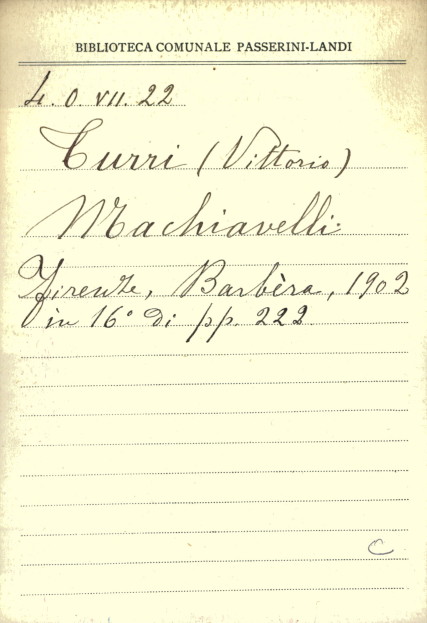 BIBLIOTECA COMUNALE PASSERINI-LANDI
4. O. VII. 22
Turri (Vittorio)
Machiavelli
Firenze, Barbèra, 1902
in 16° di pp. 222
C